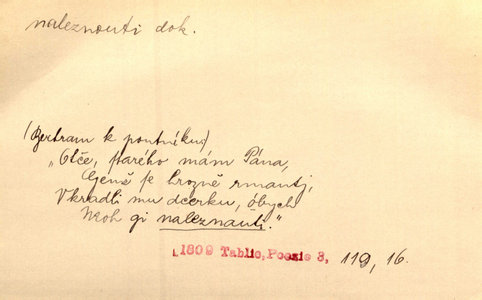 naleznouti dok.
(Bertram k poutníkovi)
"Otče, starého mám Pána,
Genž se hrozně rmautj,
Vkradli mu dcerku, ó bych
Moh gi naleznauti."
1809 Tablic, Poezie 3, 119, 16.